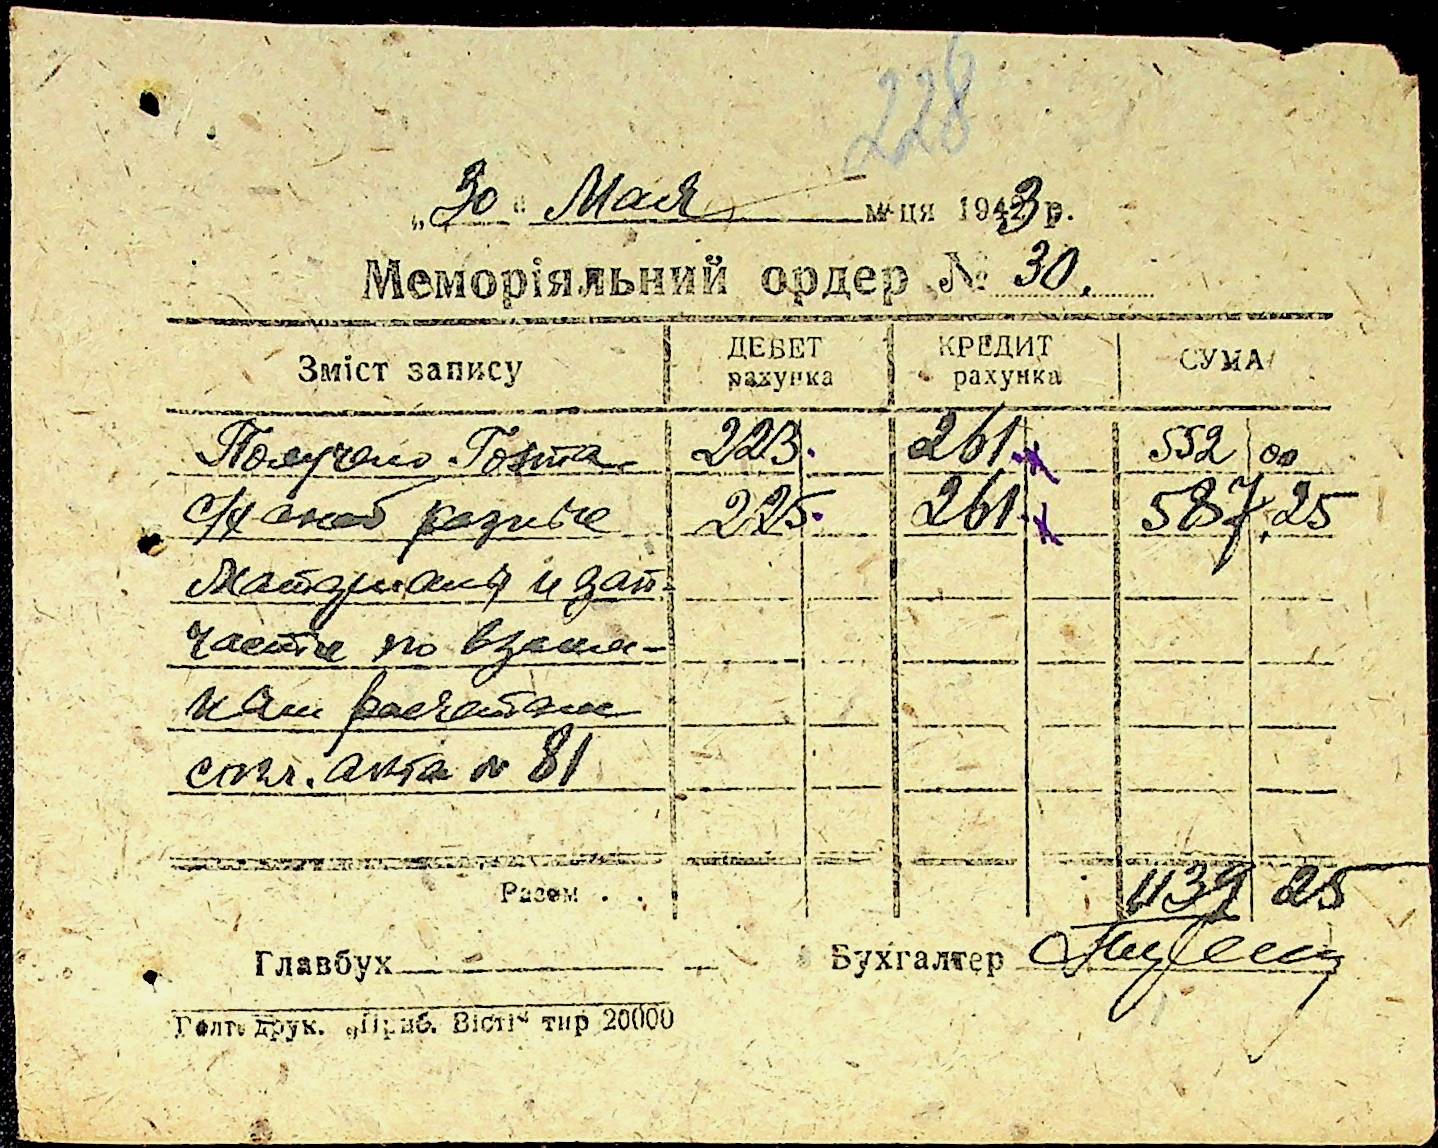 228
„30“ Мая м-ця 1943 р.
Меморіяльний ордер № 30.
Зміст запису ДЕБЕТ рахунка КРЕДИТ рахунка СУМА
Получено 223. 261. 552 00
225. 261. 587,25
Материалы и зап-
части по взаим-
ным расчетам
согл. акта № 81
Разом . . 1139 25
Главбух Бухгалтер
друк. „Приб. Вісті“ тир 20000